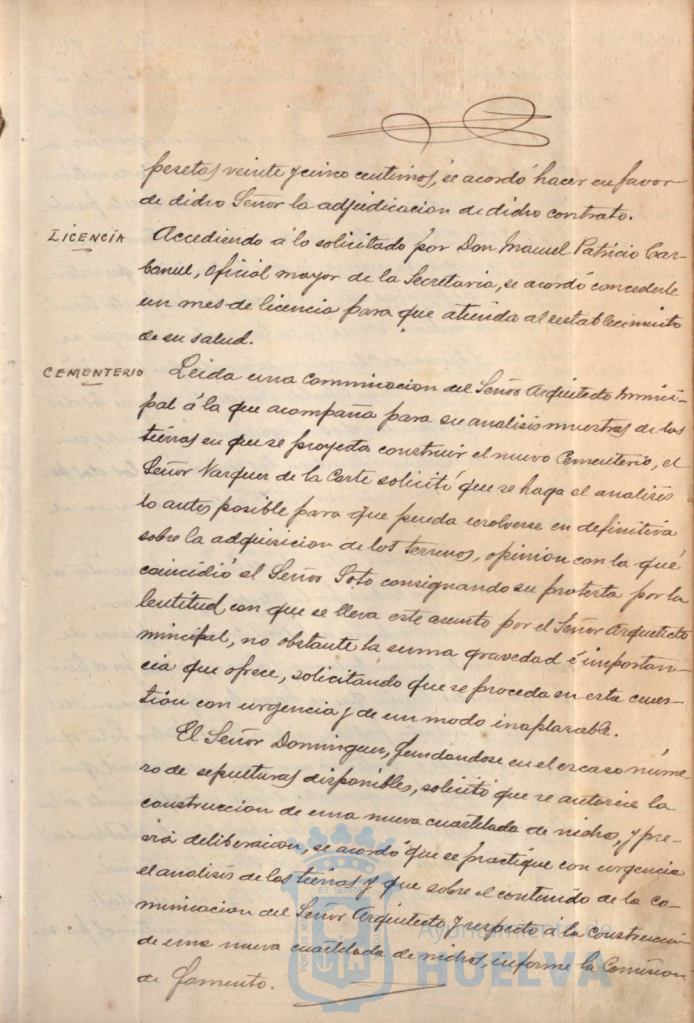 pesetas veinte y cinco centimos, se acordó hacer en favor
de dicho Señor la adjudicacion de dicho contrato.
LICENCIA
Accediendo á lo solicitado por Don Manuel Patricio Car-
baniel, oficial mayor de la Secretaria, se acordó concederle
un mes de licencia para que atienda al restablecimiento
de su salud.
CEMENTERIO
Leida una comunicacion del Señor Arquitecto munici-
pal á la que acompaña para su analisis muestras de las
tierras en que se proyecta construir el nuevo Cementerio, el
Señor Vazquez de la Corte solicitó que se haga el analisis
lo antes posible para que pueda resolverse en definitiva
sobre la adquisicion de los terrenos, opinion con la que
coincidió el Señor Soto consignando su protesta por la
lentitud con que se lleva este asunto por el Señor Arquitecto
municipal, no obstante la suma gravedad é importan-
cia que ofrece, solicitando que se proceda en esta cues-
tión con urgencia y de un modo inaplazable.
El Señor Dominguez, fundandose en el escaso núme-
ro de sepulturas disponibles, solicitó que se autorice la
construccion de una nueva cuartelada de nichos, y pre-
via deliberacion, se acordó que se practique con urgencia
el analisis de las tierras y que sobre el contenido de la co-
municacion del Señor Arquitecto y respecto á la construccion
de una nueva cuartelada de nichos, informe la Comision
de Fomento.
Ayuntamiento de
HUELVA